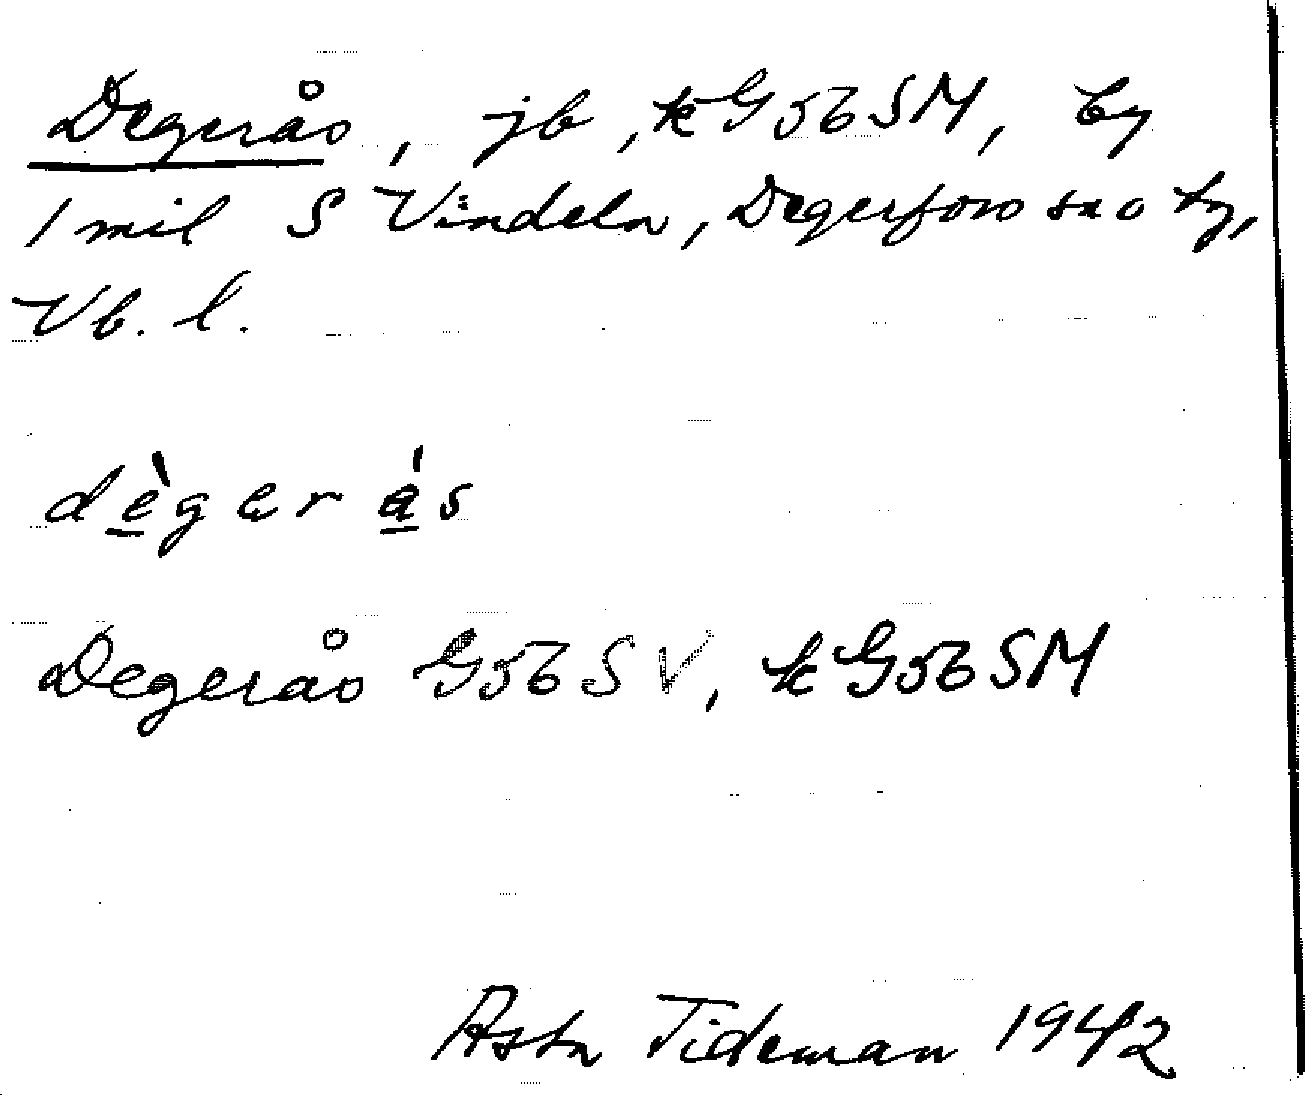 Degerås, jb, kG56SM, by
1 mil S Vindeln, Degerfors sn o tg,
Vb. l.
dègerás
Degerås G56SV, kG56SM
Asta Tideman 1942